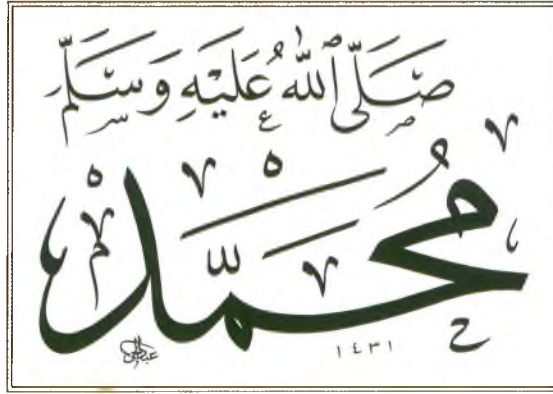 صَلَّى ٱللَّٰهُ عَلَيْهِ وَسَلَّمَ
مُحَمَّد
١٤٣١